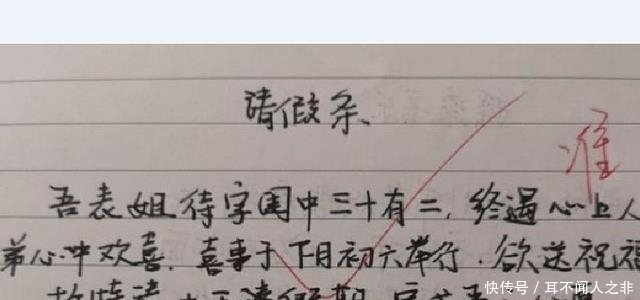 请假条
准
吾表姐待字闺中三十有二，终遇心上人
弟心中欢喜，喜事于下月初六举行，欲送祝福
快传号／耳不闻人之非